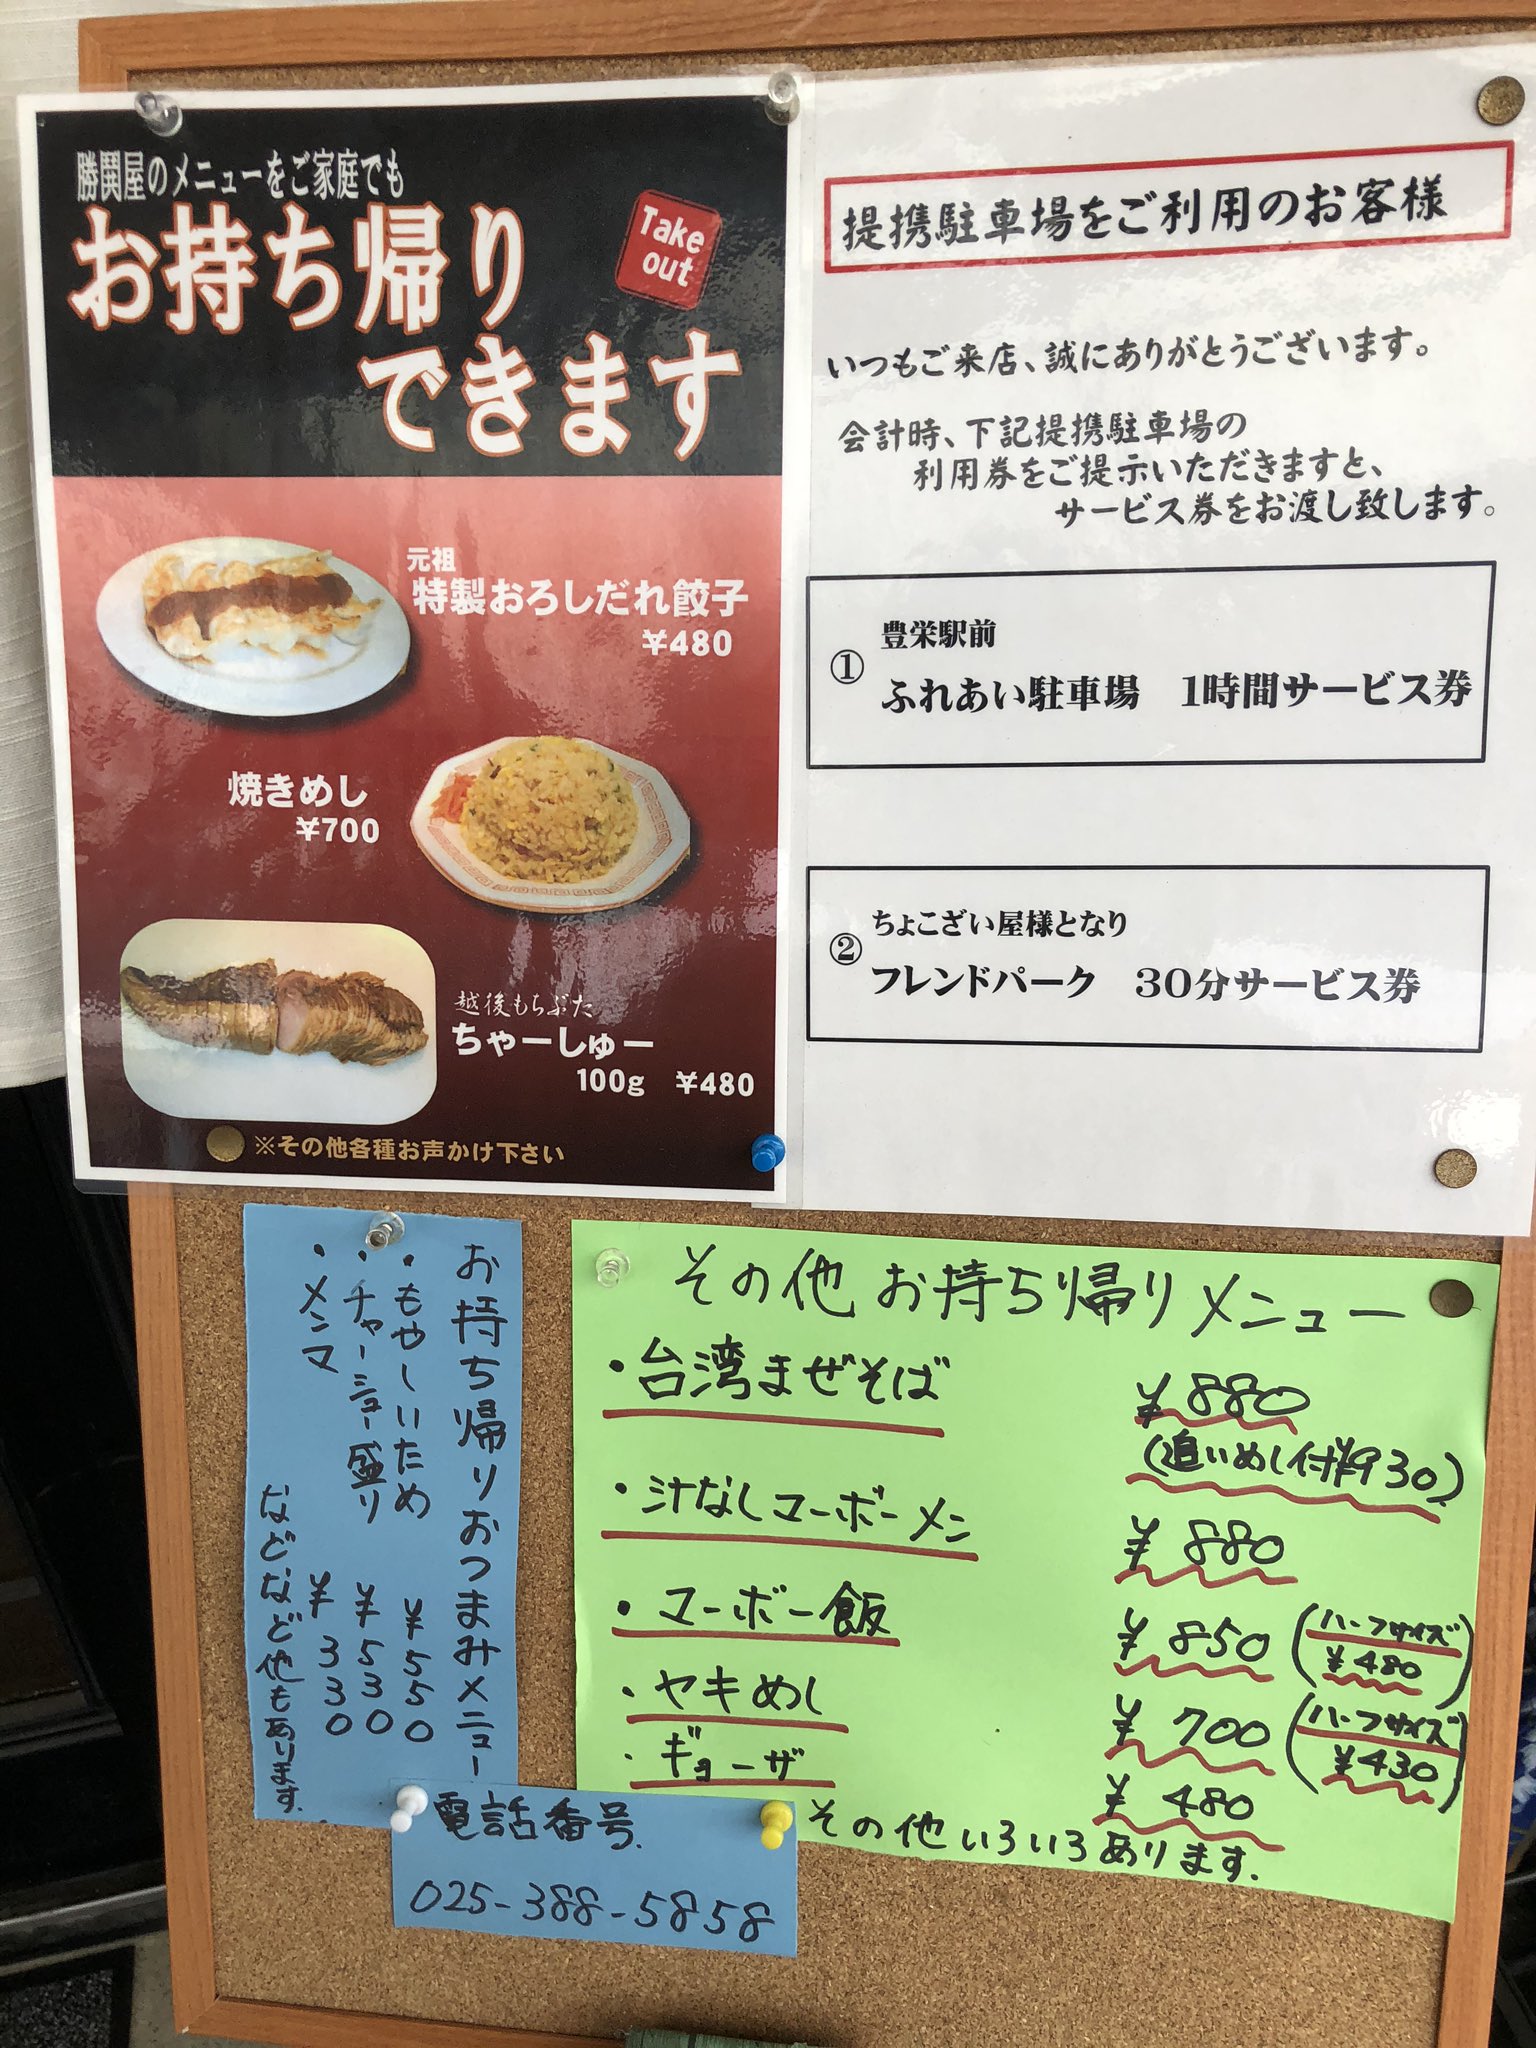 勝鬨屋のメニューをご家庭でも
お持ち帰り
できます
Take
out
元祖
特製おろしだれ餃子
¥480
焼きめし
¥700
越後もちぶた
ちゃーしゅー
100g ¥480
※その他各種お声かけ下さい
提携駐車場をご利用のお客様
いつもご来店、誠にありがとうございます。
会計時、下記提携駐車場の
利用券をご提示いただきますと、
サービス券をお渡し致します。
① 豊栄駅前
ふれあい駐車場 1時間サービス券
② ちょこざい屋様となり
フレンドパーク 30分サービス券
お持ち帰りおつまみメニュー
・もやしいため ¥550
・チャーシュー盛り ¥530
・メンマ ¥330
などなど他もあります.
電話番号.
025-388-5858
その他 お持ち帰りメニュー
・台湾まぜそば ¥880
(追いめし付¥930)
・汁なしマーボーメン ¥880
・マーボー飯 ¥850 (ハーフサイズ ¥480)
・ヤキめし ¥700 (ハーフサイズ ¥430)
・ギョーザ ¥480
その他いろいろあります.